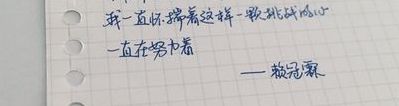 我一直怀揣着这样一颗挑战的心
一直在努力着
——赖冠霖